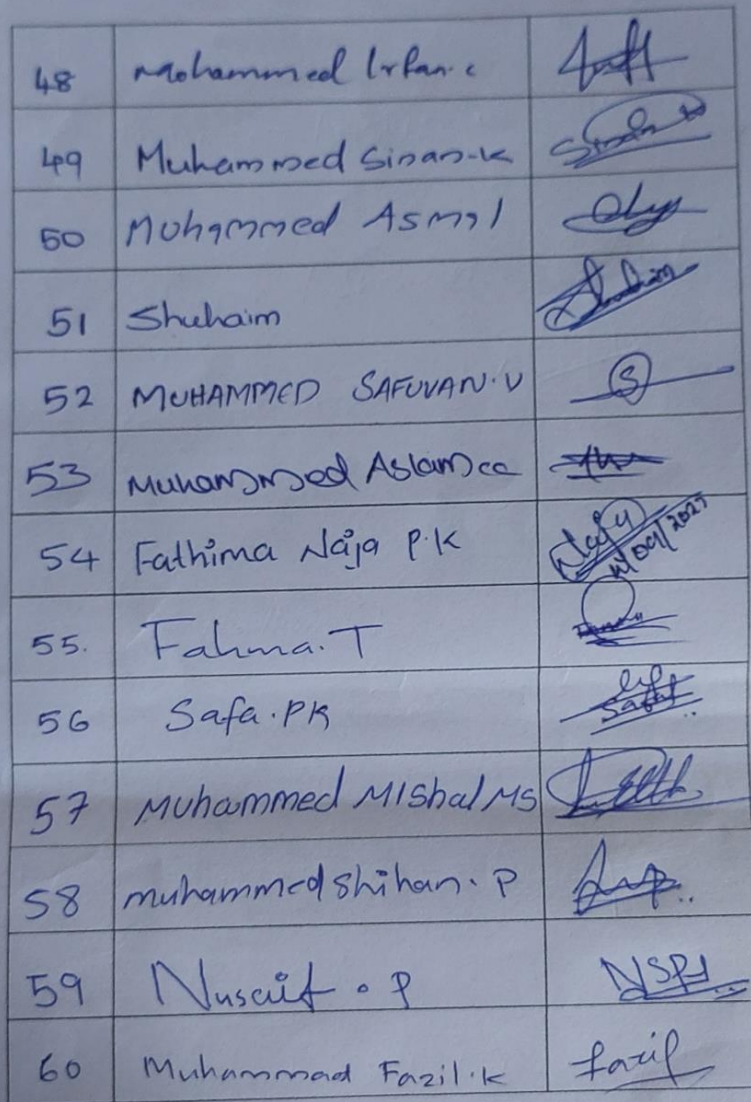 48 Mohammed Irfan.c
49 Muhammed Sinan-K
50 Mohammed Asmal
51 Shuhaim
52 MUHAMMED SAFUVAN.V
53 Muhammed Aslam cc
54 Fathima Naja P.K
55. Fahma.T
56 Safa.PK
57 Muhammed MIshal MS
58 muhammed shihan.P
59 Nusaif.P
60 Muhammad Fazil.K fazil